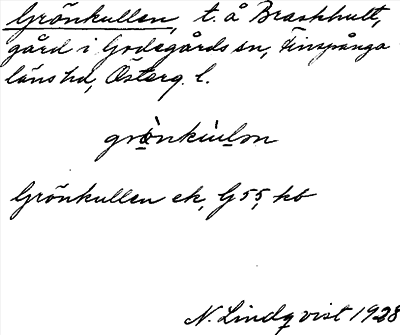 Grönkullen, t. å Braskhult,
gård i Godegårds sn, Finspånga
läns hd, Österg. l.
Grönkullen ek, G 55, kb
N. Lindqvist 1928